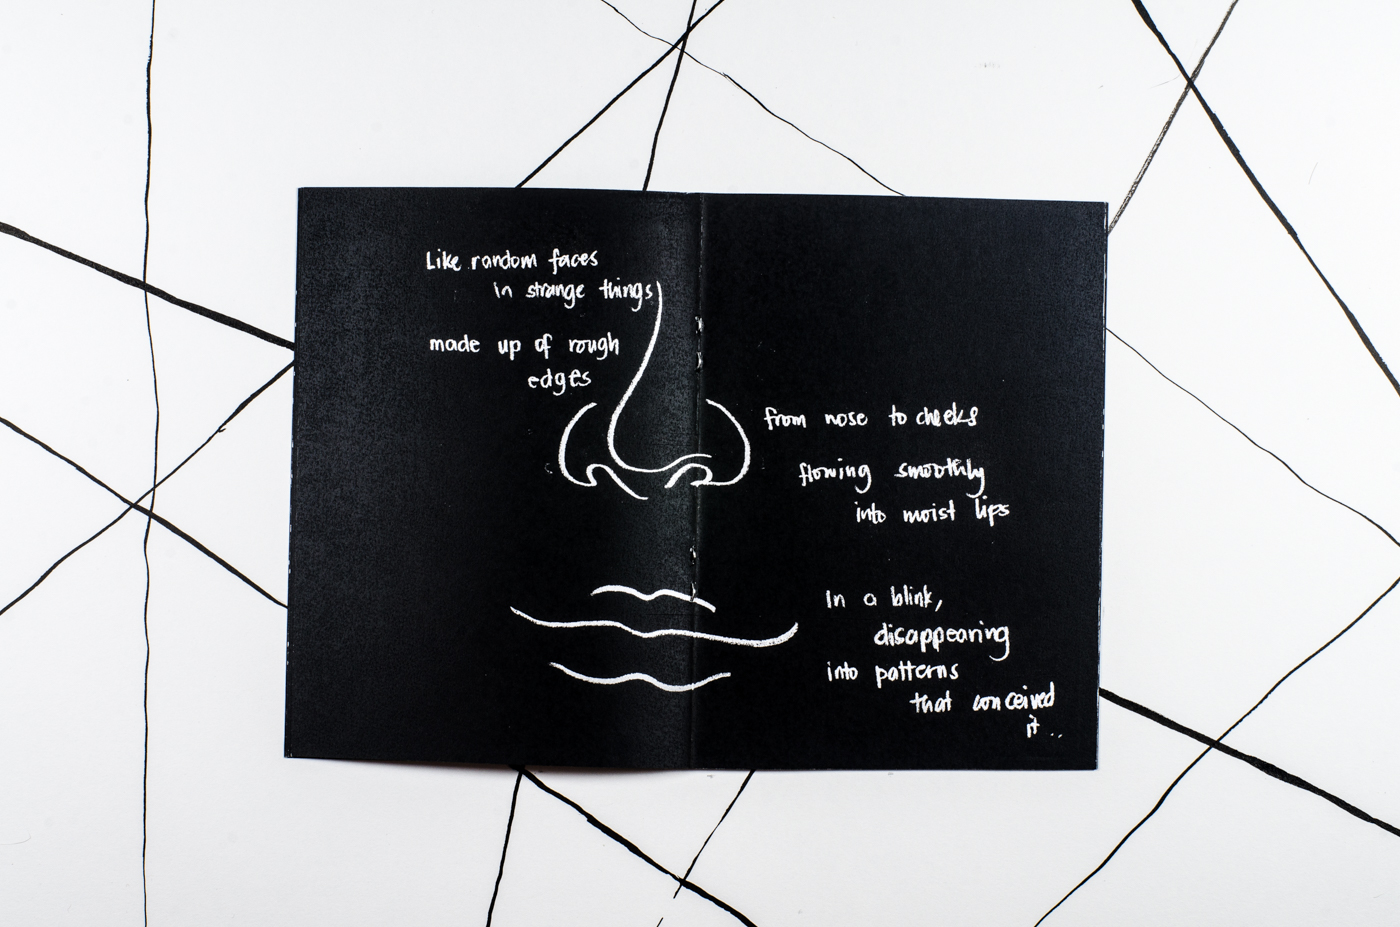 Like random faces
in strange things
made up of rough
edges
from nose to cheeks
flowing smoothly
into moist lips
In a blink,
disappearing
into patterns
that conceived
it..